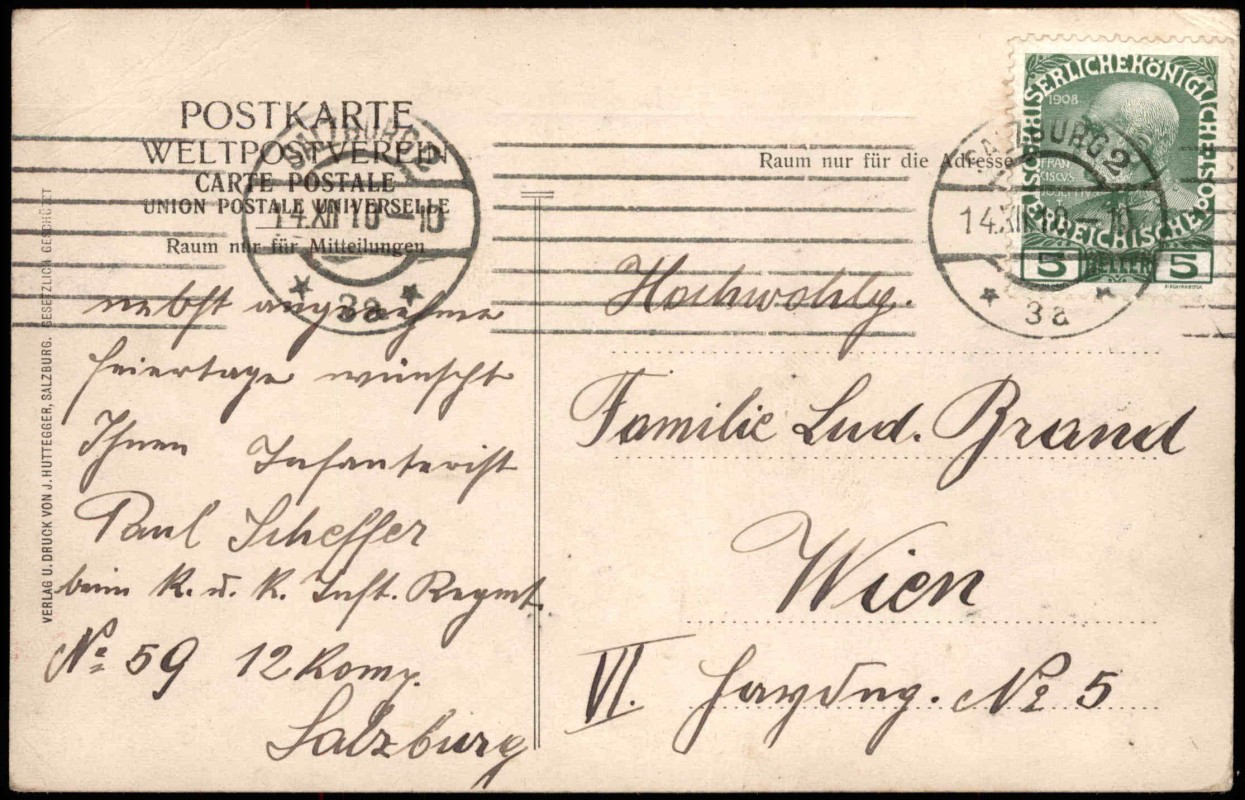 POSTKARTE
WELTPOSTVEREIN
CARTE POSTALE
UNION POSTALE UNIVERSELLE
Raum nur für Mitteilungen
SALZBURG 2
14.XII 10 - 10
* 3a *
nebst angenehme
Feiertage wünscht
Ihnen Infanterist
Paul Scheffer
beim K. u. K. Inft. Regmt.
No 59 12 Komp.
Salzburg
VERLAG U. DRUCK VON J. HUTTEGGER, SALZBURG. GESETZLICH GESCHÜTZT
Raum nur für die Adresse
SALZBURG 2
14.XII 10 - 10
* 3a *
KAISERLICHE KÖNIGLICHE
ÖSTERREICHISCHE
1908
FRAN
CISCVS
5 HELLER 5
Hochwohlg.
Familie Lud. Brand
Wien
VI. Haydng. No 5